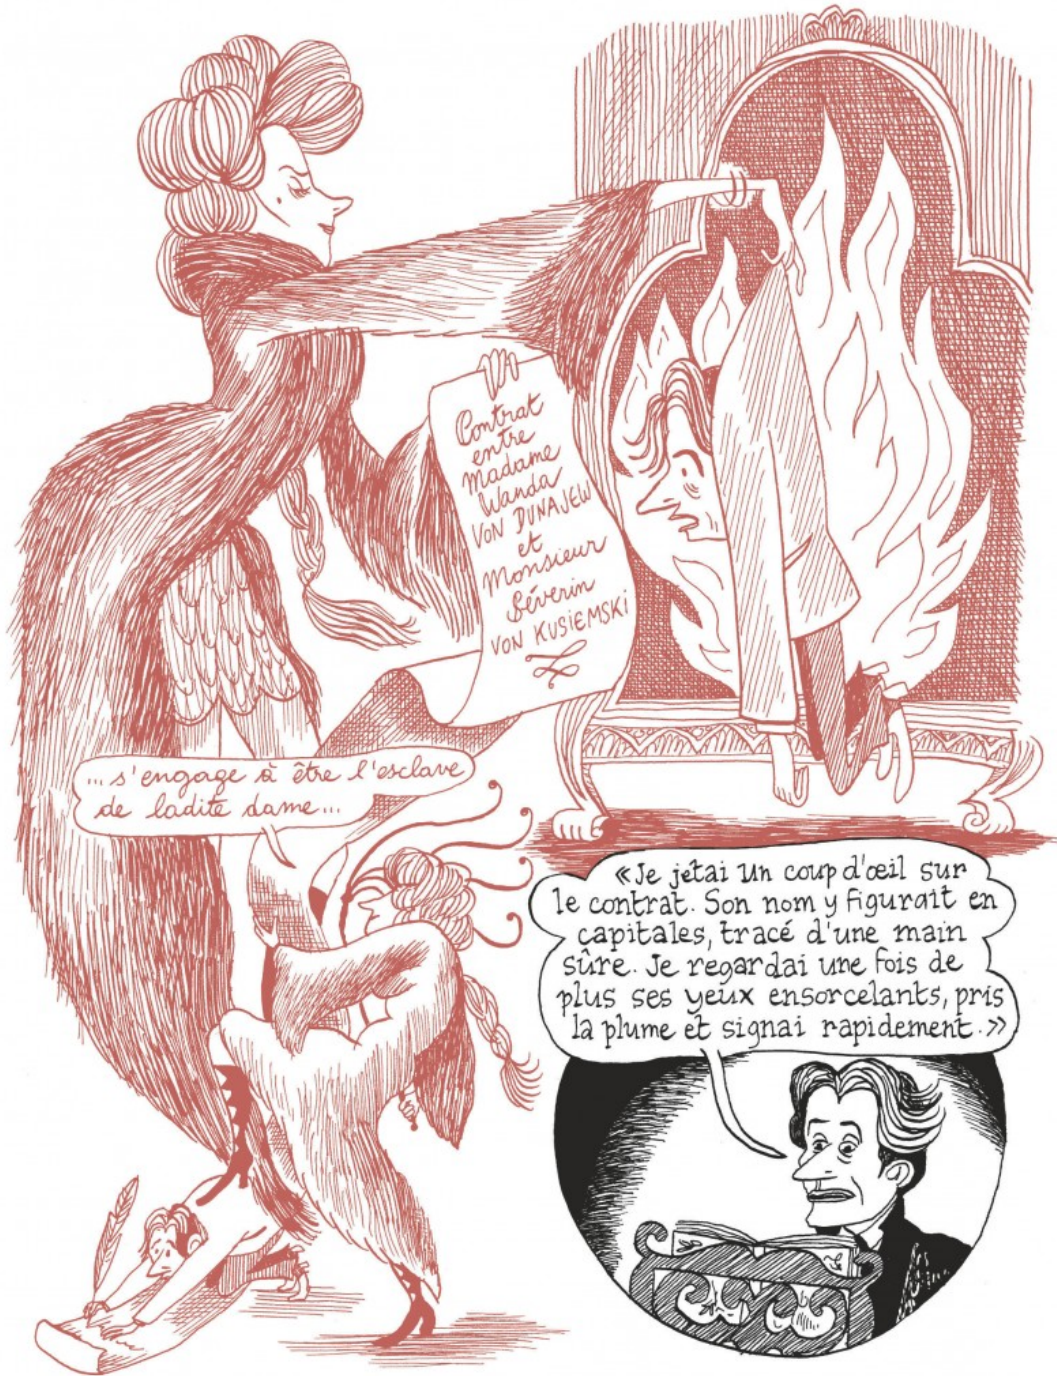 Contrat
entre
Madame
Wanda
VON DUNAJEW
et
Monsieur
Séverin
VON KUSIEMSKI
... s'engage à être l'esclave
de ladite dame...
«Je jetai un coup d'œil sur
le contrat. Son nom y figurait en
capitales, tracé d'une main
sûre. Je regardai une fois de
plus ses yeux ensorcelants, pris
la plume et signai rapidement.»